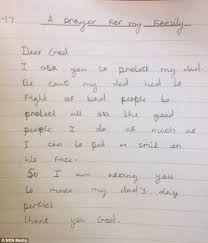 17 A prayer for my family
Dear God
I ask you to protect my dad
Be caus my dad had to
fight of bad people to
protect all ove the good
people I do as much as
I can be put a smil on
his face.
So I am asking you
to make my dad's day
perfect
thank you God.
© MEN Media